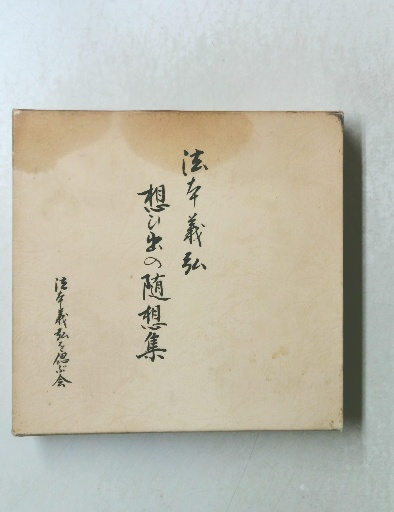 法本義弘
想ひ出の随想集
法本義弘を偲ぶ会